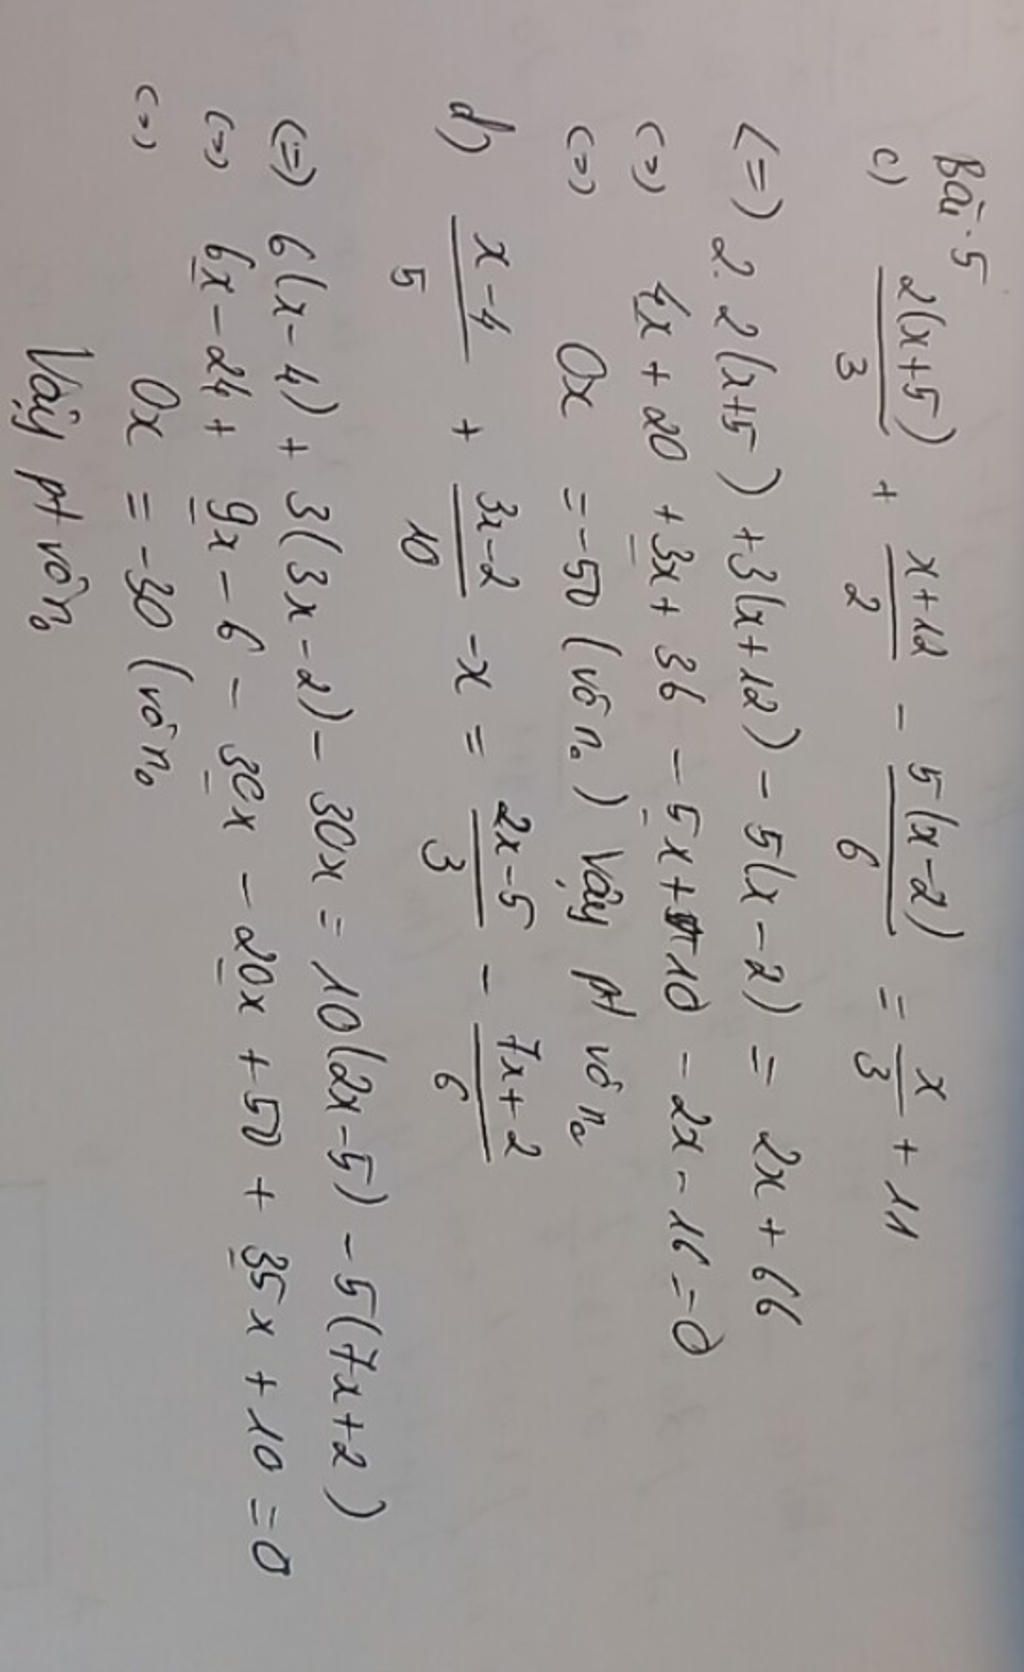 Bài 5
c) 2(x+5)/3 + x+12/2 - 5(x-2)/6 = x/3 + 11
<=> 2.2(x+5) +3(x+12) - 5(x-2) = 2x + 66
<=> 4x + 20 +3x + 36 - 5x + 10 - 2x - 16 = 0
<=> 0x = -50 (vô no) Vậy pt vô no
d) x-4/5 + 3x-2/10 - x = 2x-5/3 - 7x+2/6
<=> 6(x-4) + 3(3x-2) - 30x = 10(2x-5) - 5(7x+2)
<=> 6x - 24 + 9x - 6 - 30x - 20x + 50 + 35x + 10 = 0
<=> 0x = -30 (vô no
Vậy pt vô no